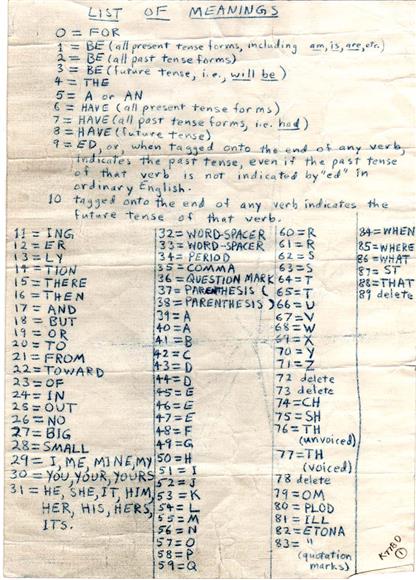 LIST OF MEANINGS
0 = FOR
1 = BE (all present tense forms, including am, is, are, etc.)
2 = BE (all past tense forms)
3 = BE (future tense, i.e., will be)
4 = THE
5 = A OR AN
6 = HAVE (all present tense forms)
7 = HAVE (all past tense forms, i.e. had)
8 = HAVE (future tense)
9 = ED, or, when tagged onto the end of any verb,
indicates the past tense, even if the past tense
of that verb is not indicated by "ed" in
ordinary English.
10 tagged onto the end of any verb indicates the
future tense of that verb.
11 = ING
12 = ER
13 = LY
14 = TION
15 = THERE
16 = THEN
17 = AND
18 = BUT
19 = OR
20 = TO
21 = FROM
22 = TOWARD
23 = OF
24 = IN
25 = OUT
26 = NO
27 = BIG
28 = SMALL
29 = I, ME, MINE, MY
30 = YOU, YOUR, YOURS
31 = HE, SHE, IT, HIM,
HER, HIS, HERS,
ITS.
32 = WORD-SPACER
33 = WORD-SPACER
34 = PERIOD
35 = COMMA
36 = QUESTION MARK
37 = PARENTHESIS (
38 = PARENTHESIS )
39 = A
40 = A
41 = B
42 = C
43 = D
44 = D
45 = E
46 = E
47 = E
48 = F
49 = G
50 = H
51 = I
52 = J
53 = K
54 = L
55 = M
56 = N
57 = O
58 = P
59 = Q
60 = R
61 = R
62 = S
63 = S
64 = T
65 = T
66 = U
67 = V
68 = W
69 = X
70 = Y
71 = Z
72 delete
73 delete
74 = CH
75 = SH
76 = TH
(unvoiced)
77 = TH
(voiced)
78 delete
79 = OM
80 = PLOD
81 = ILL
82 = ETONA
83 = "
(quotation
marks)
84 = WHEN
85 = WHERE
86 = WHAT
87 = ST
88 = THAT
89 delete